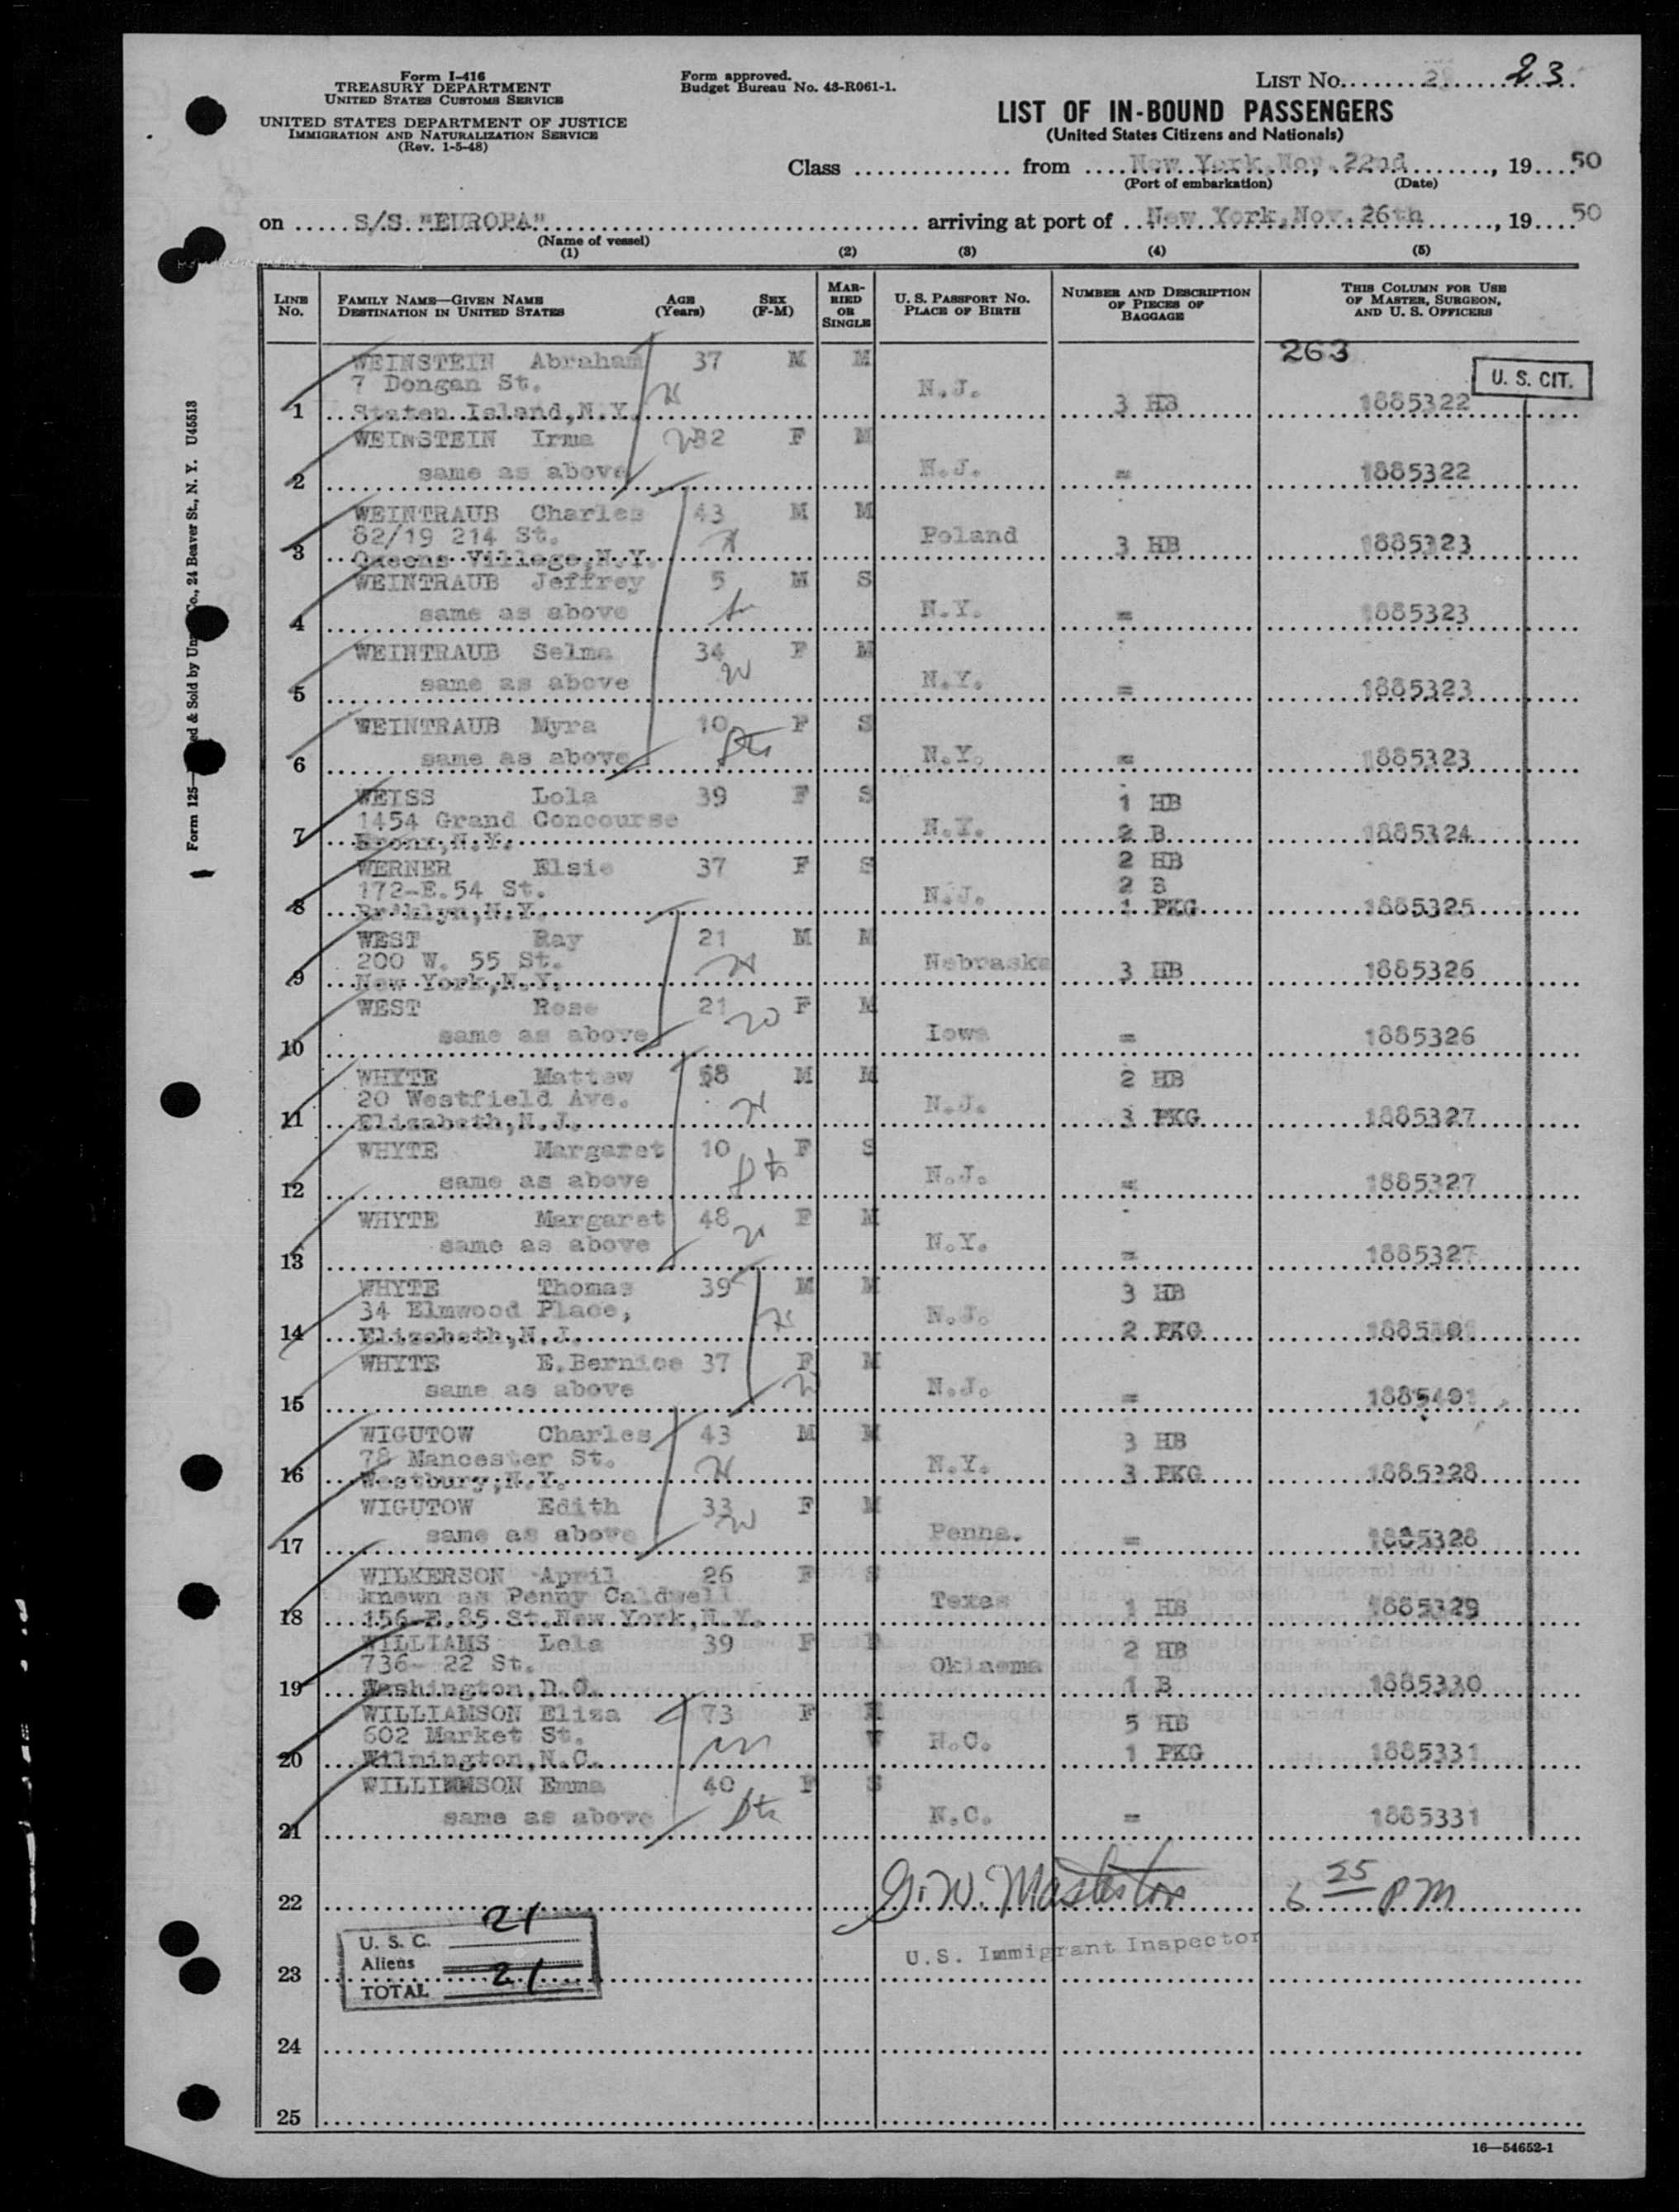 Form I-416
TREASURY DEPARTMENT
UNITED STATES CUSTOMS SERVICE
UNITED STATES DEPARTMENT OF JUSTICE
IMMIGRATION AND NATURALIZATION SERVICE
(Rev. 1-5-48)
Form approved.
Budget Bureau No. 43-R061-1.
LIST NO. 2 23
LIST OF IN-BOUND PASSENGERS
(United States Citizens and Nationals)
Class from New York, Nov. 22nd, 19 50
(Port of embarkation) (Date)
on S/S "EUROPA" arriving at port of New York, Nov. 26th, 19 50
(Name of vessel)
(1) (2) (3) (4) (5)
LINE NO. FAMILY NAME—GIVEN NAME DESTINATION IN UNITED STATES AGE (Years) SEX (F-M) MARRIED OR SINGLE U. S. PASSPORT NO. PLACE OF BIRTH NUMBER AND DESCRIPTION OF PIECES OF BAGGAGE THIS COLUMN FOR USE OF MASTER, SURGEON, AND U. S. OFFICERS
263
U. S. CIT.
WEINSTEIN Abraham 37 M M
7 Dongan St. N.J.
1 Staten Island, N.Y. 3 HB 1885322
WEINSTEIN Irma 32 F M
2 same as above N.J. = 1885322
WEINTRAUB Charles 43 M M
82/19 214 St. Poland
3 Queens Village, N.Y. 3 HB 1885323
WEINTRAUB Jeffrey 5 M S
4 same as above N.Y. = 1885323
WEINTRAUB Selma 34 F M
5 same as above N.Y. = 1885323
WEINTRAUB Myra 10 F S
6 same as above N.Y. = 1885323
WEISS Lola 39 F S 1 HB
1454 Grand Concourse
7 Bronx, N.Y. N.Y. 2 B 1885324
WERNER Elsie 37 F S 2 HB
172-E. 54 St. N.J. 2 B
8 Brklyn, N.Y. 1 PKG 1885325
WEST Ray 21 M M
200 W. 55 St. Nebraska
9 New York, N.Y. 3 HB 1885326
WEST Rose 21 F M
10 same as above Iowa = 1885326
WHYTE Mattew 58 M M 2 HB
20 Westfield Ave. N.J.
11 Elizabeth, N.J. 3 PKG 1885327
WHYTE Margaret 10 F S
12 same as above N.J. = 1885327
WHYTE Margaret 48 F M
13 same as above N.Y. = 1885327
WHYTE Thomas 39 M M 3 HB
34 Elmwood Place, N.J.
14 Elizabeth, N.J. 2 PKG
WHYTE E.Bernice 37 F M
15 same as above N.J. = 1885401
WIGUTOW Charles 43 M M 3 HB
78 Mancester St. N.Y.
16 Westbury, N.Y. 3 PKG 1885328
WIGUTOW Edith 33 F M
17 same as above Penna. = 1885328
WILKERSON April 26 F S
known as Penny Caldwell Texas
18 156-E. 85 St. New York, N.Y. 1 HB 1885329
WILLIAMS Lela 39 F 2 HB
736- 22 St. Oklaoma
19 Washington, D.C. 1 B 1885330
WILLIAMSON Eliza 73 F 5 HB
602 Market St. W N.C.
20 Wilmington, N.C. 1 PKG 1885331
WILLIAMSON Emma 40 F S
21 same as above N.C. = 1885331
22 G. W. Masterton 6 25 PM
U.S. Immigrant Inspector
U. S. C. 21
Aliens
TOTAL 21
23
24
25
16—54652-1
Form 125— ed & Sold by Unz Co., 24 Beaver St., N. Y. U45513